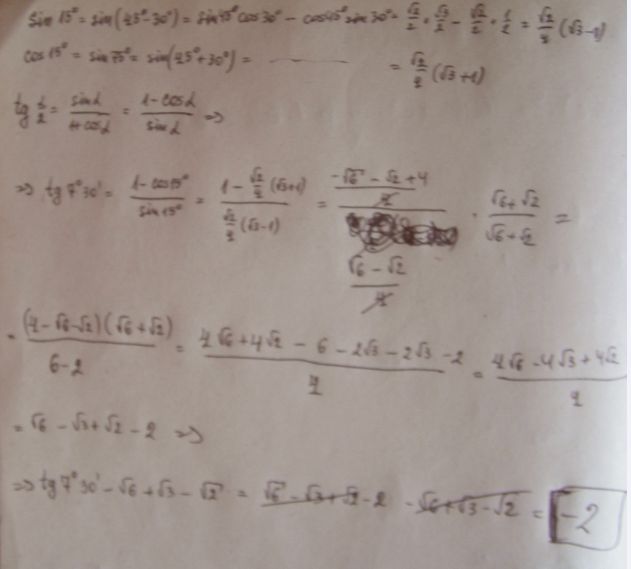 sin 15° = sin(45°-30°) = sin45° cos30° - cos45° sin30° = √2/2 · √3/2 - √2/2 · 1/2 = √2/4 (√3-1)
cos 15° = sin 75° = sin(45°+30°) = ——— = √2/4 (√3+1)
tg α/2 = sinα/1+cosα = 1-cosα/sinα ⇒
⇒ tg 7°30' = 1-cos15°/sin15° = 1-√2/4(√3+1) / √2/4(√3-1) = -√6-√2+4/4 / √6-√2/4 · √6+√2/√6+√2 =
= (4-√6-√2)(√6+√2)/6-2 = 4√6+4√2-6-2√3-2√3-2/4 = 4√6-4√3+4√2/4
= √6-√3+√2-2 ⇒
⇒ tg 7°30' - √6+√3-√2 = √6-√3+√2-2 -√6+√3-√2 = -2